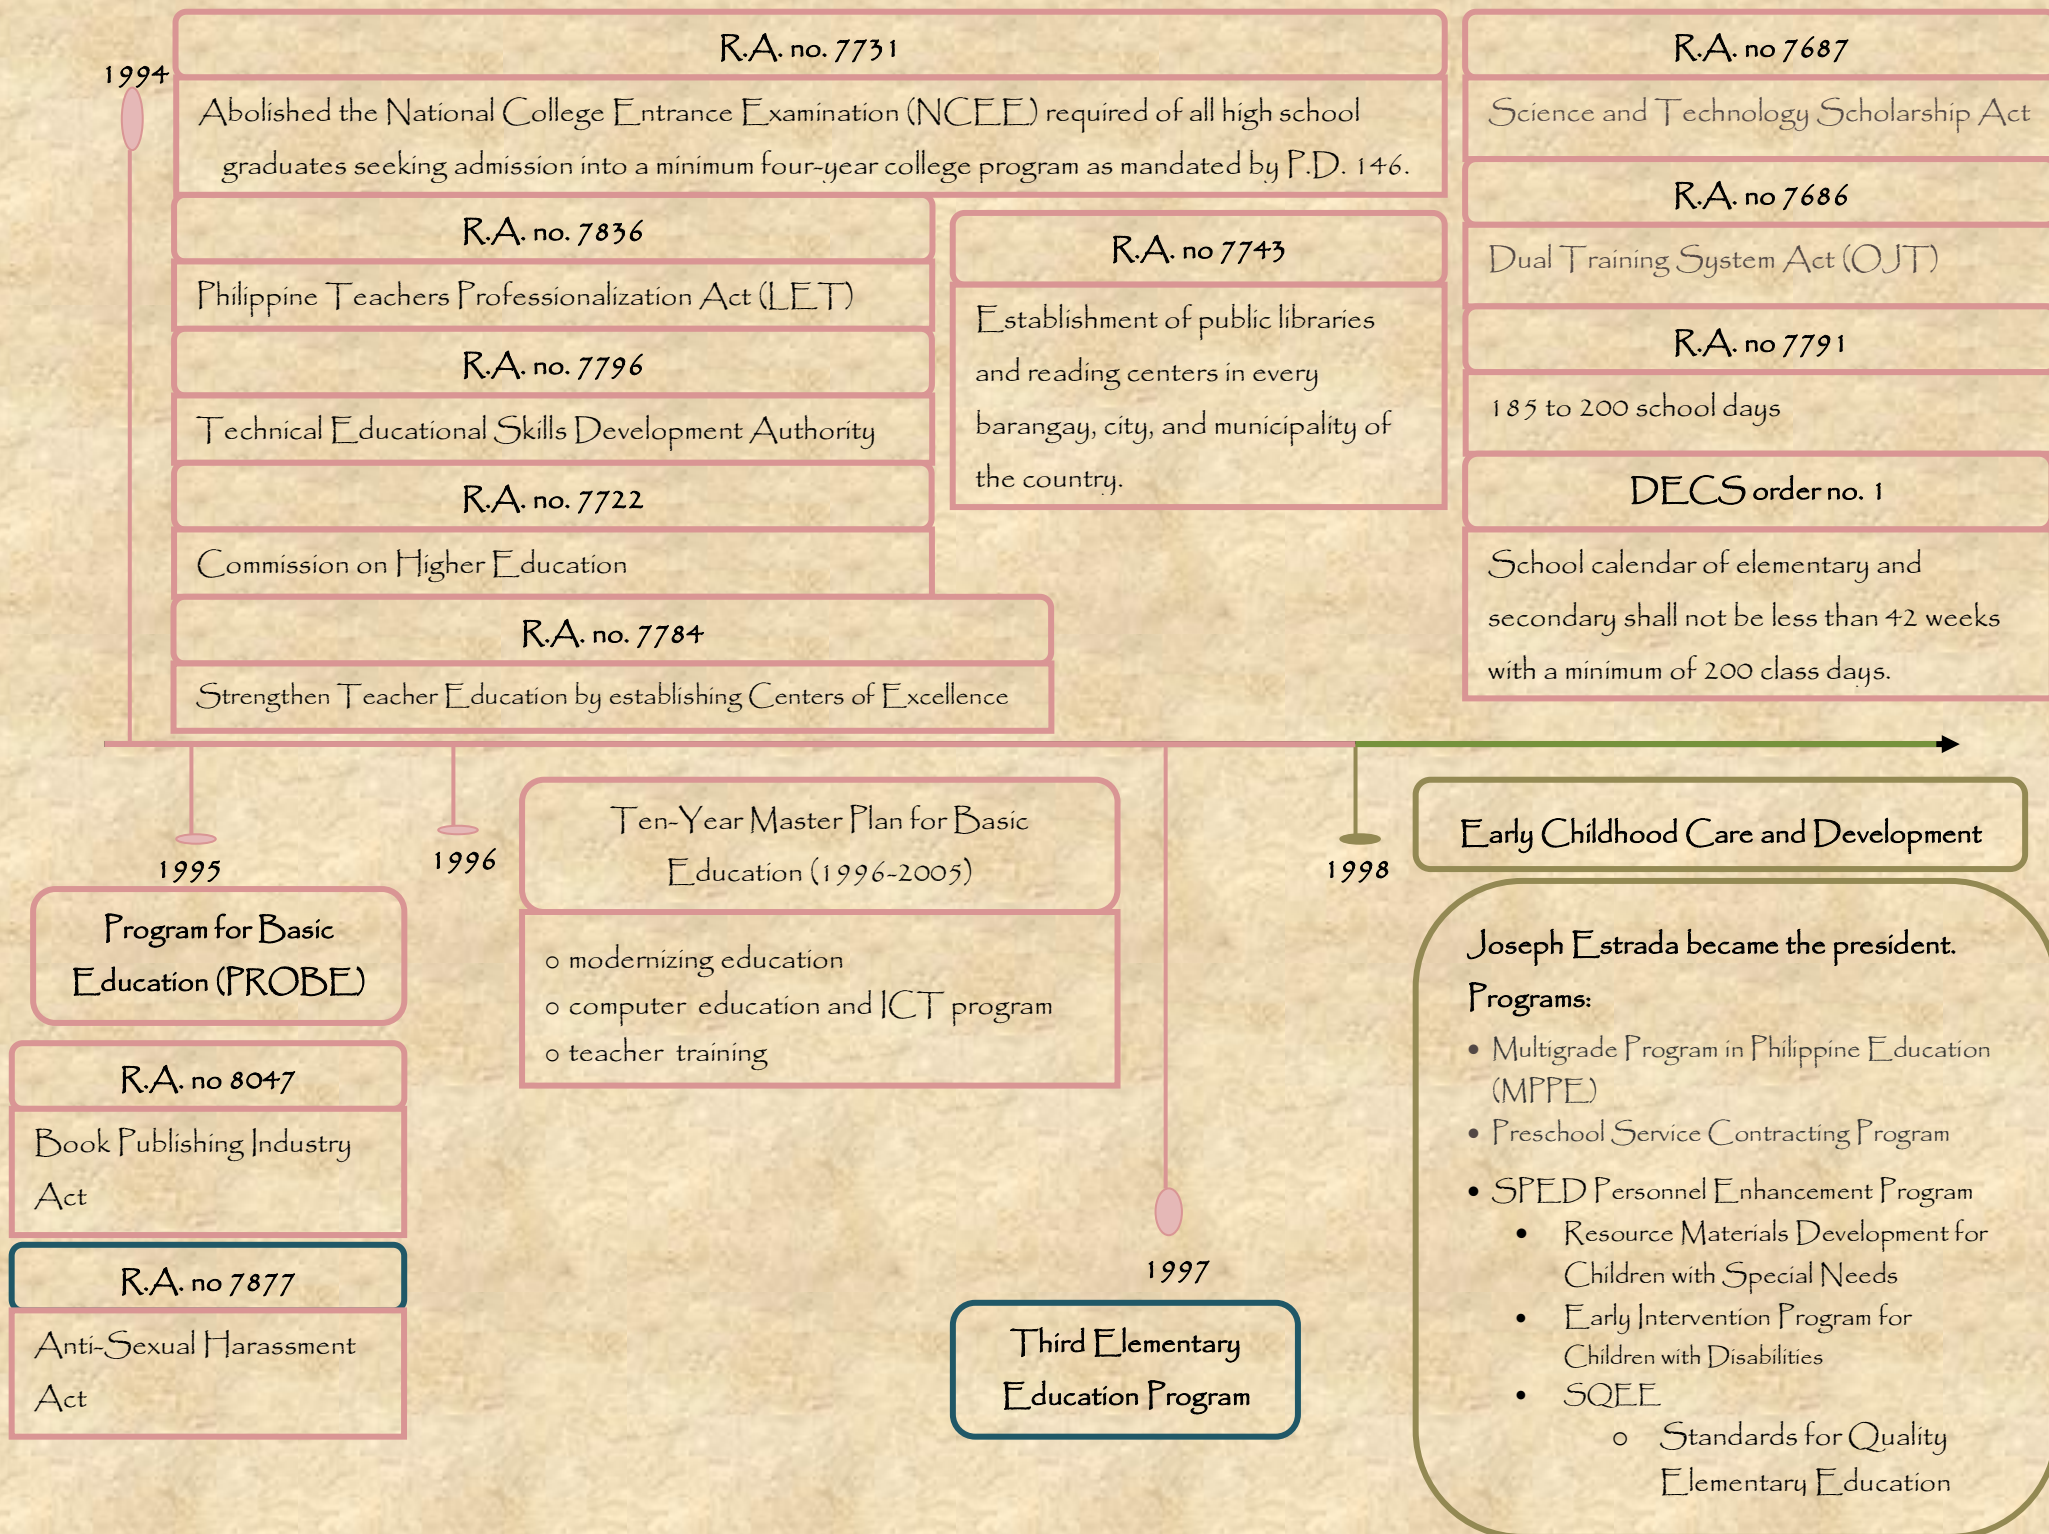 1994
R.A. no. 7731
Abolished the National College Entrance Examination (NCEE) required of all high school
graduates seeking admission into a minimum four-year college program as mandated by P.D. 146.
R.A. no. 7836
Philippine Teachers Professionalization Act (LET)
R.A. no. 7796
Technical Educational Skills Development Authority
R.A. no. 7722
Commission on Higher Education
R.A. no. 7784
Strengthen Teacher Education by establishing Centers of Excellence
R.A. no 7743
Establishment of public libraries
and reading centers in every
barangay, city, and municipality of
the country.
R.A. no 7687
Science and Technology Scholarship Act
R.A. no 7686
Dual Training System Act (OJT)
R.A. no 7791
185 to 200 school days
DECS order no. 1
School calendar of elementary and
secondary shall not be less than 42 weeks
with a minimum of 200 class days.
1995
Program for Basic
Education (PROBE)
R.A. no 8047
Book Publishing Industry
Act
R.A. no 7877
Anti-Sexual Harassment
Act
1996
Ten-Year Master Plan for Basic
Education (1996-2005)
o modernizing education
o computer education and ICT program
o teacher training
1997
Third Elementary
Education Program
1998
Early Childhood Care and Development
Joseph Estrada became the president.
Programs:
• Multigrade Program in Philippine Education
(MPPE)
• Preschool Service Contracting Program
• SPED Personnel Enhancement Program
• Resource Materials Development for
Children with Special Needs
• Early Intervention Program for
Children with Disabilities
• SQEE
o Standards for Quality
Elementary Education